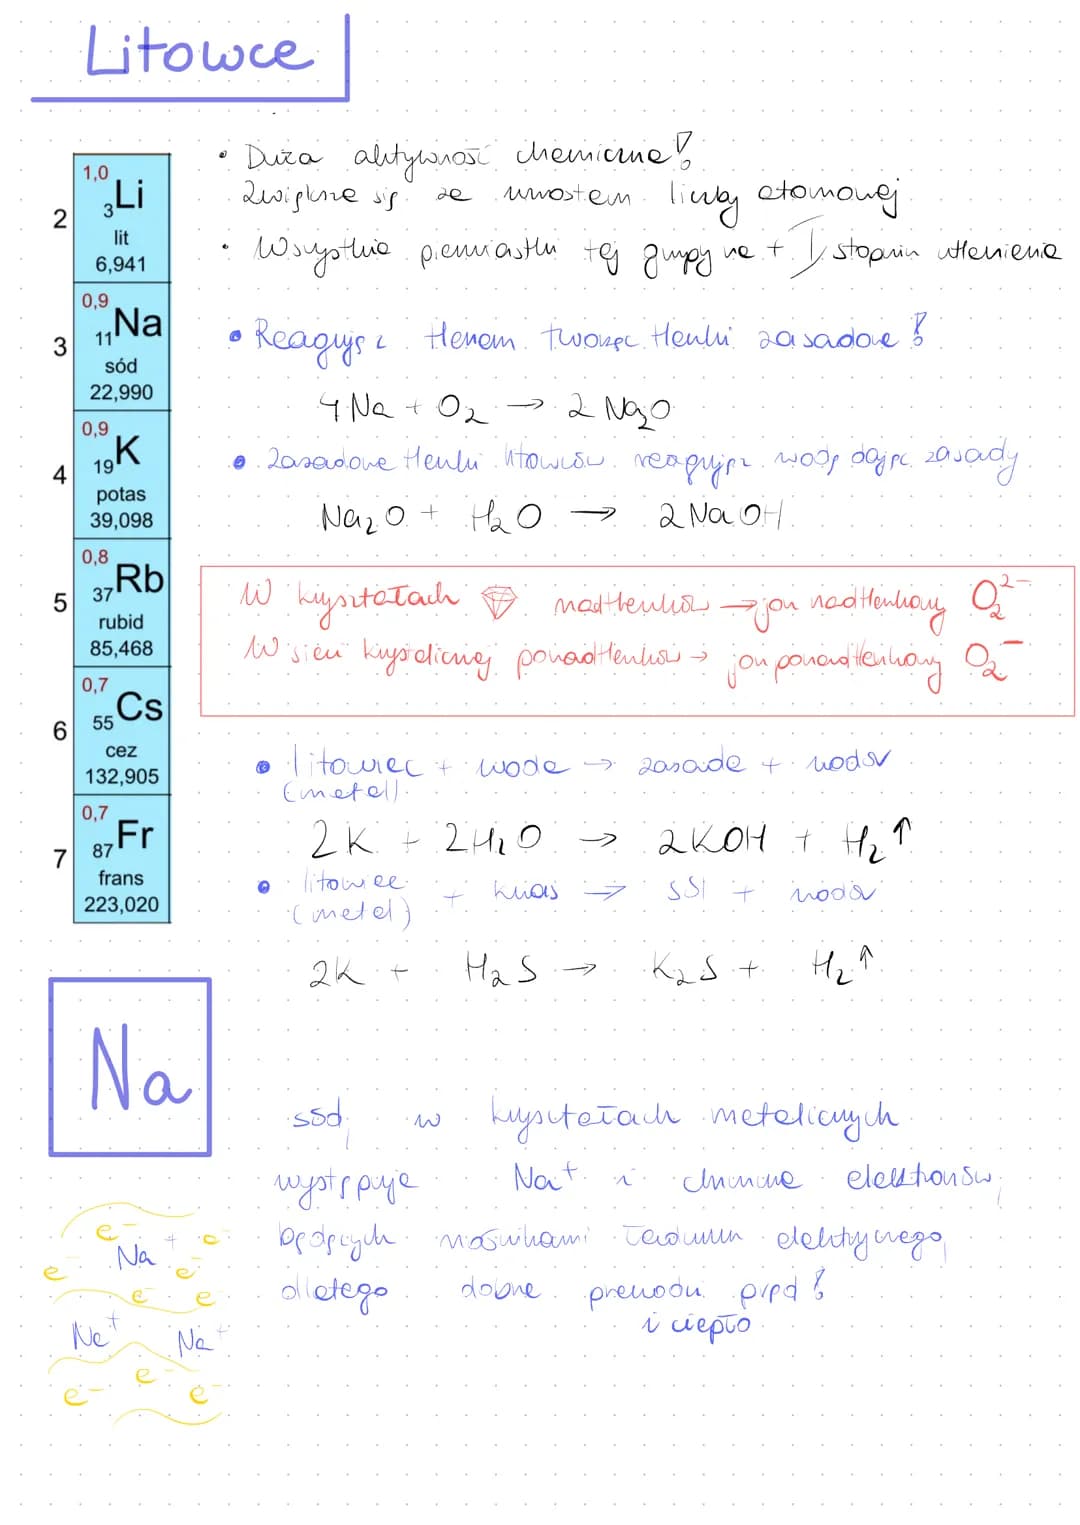 Litowce
2
1,0
3 Li
lit
6,941
3
0,9
11 Na
sód
22,990
4
0,9
19 K
potas
39,098
5
0,8
37 Rb
rubid
85,468
6
0,7
55 Cs
cez
132,905
7
0,7
87 Fr
frans
223,020
• Duża aktywność chemiczna!
Zwiększa się ze wzrostem liczby atomowej
• Wszystkie pierwiastki tej grupy na + I stopnin utlenienia
• Reagują z tlenem tworząc tlenki zasadowe!
4 Na + O₂ → 2 Na₂O
• Zasadowe tlenki litowców reagują z wodą dając zasady
Na₂O + H₂O → 2 NaOH
W kryształach nadtlenków → jon nadtlenkowy O₂²⁻
W sieci krystalicznej ponadtlenków → jon ponadtlenkowy O₂⁻
• litowiec + woda → zasada + wodór
(metal)
2K + 2H₂O → 2KOH + H₂↑
• litowiec + kwas → sól + wodór
(metal)
2K + H₂S → K₂S + H₂↑
Na
sód w kryształach metalicznych
występuje Na⁺ i chmura elektronów,
będących nośnikami ładunku elektrycznego,
dlatego dobrze przewodzi prąd!
i ciepło
e⁻ Na⁺ e
e e
e⁻ e
Na⁺ Na⁺
e⁻
e⁻ e⁻